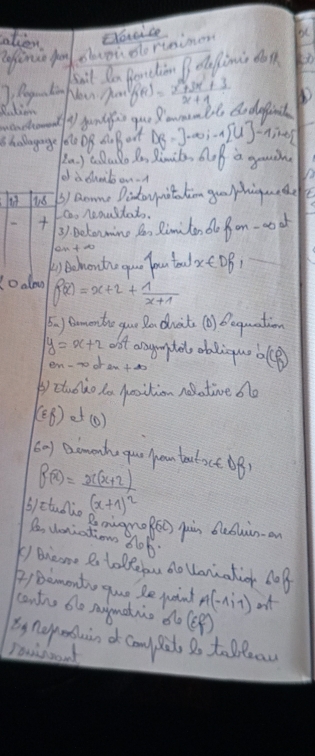 Exercice
devoir de maison
Soit la fonction f definie de R
vers R par f(x) = x²+3x+3
x+1
1) Justifie que l'ensemble de definition
de Df de f est Df = ]-∞;-1[U]-1;+∞[
2a-) calcule les limites de f à gauche
et à droite en -1
b) Donne l'interprétation graphique de
ces resultats.
3) Determine les limites de f en -∞ et
en +∞
4) Demontre que pour tout x ∈ Df,
f(x) = x+2 + 1
x+1
5a-) Demontre que la droite (D) d'equation
y = x+2 est asymptote oblique à (Cf)
en -∞ et en +∞
b) Etudie la position relative de
(Cf) et (D)
6a) Démontre que pour tout x ∈ Df,
f'(x) = x(x+2)
(x+1)²
b) Etudie le signe f'(x) puis deduis-en
les variations de f.
c) Dresse le tableau de variation de f
7) Démontre que le point A(-1;1) est
centre de symetrie de (Cf)
8) Reproduis et complète le tableau
suivant